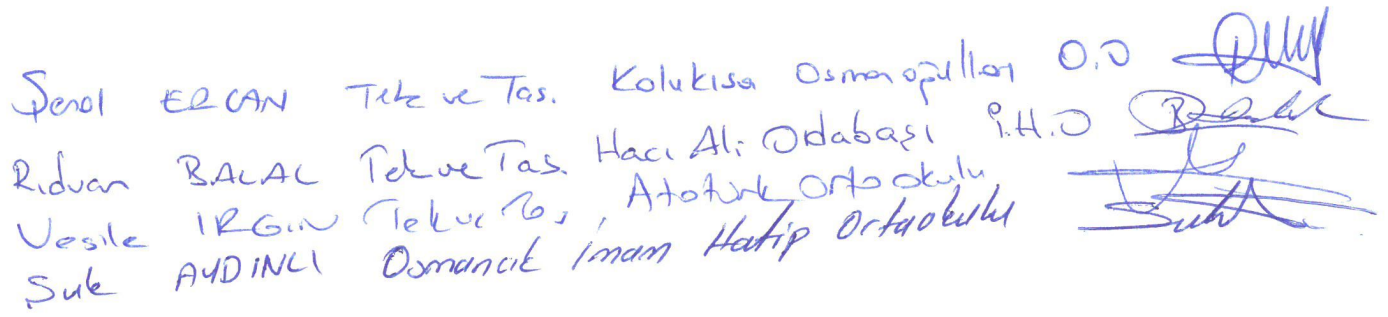 Şenol ERCAN Tek ve Tas. Kolukısa Osmanoğulları O.O
Rıdvan BALAL Tek ve Tas. Hacı Ali Odabaşı İ.H.O
Vesile IRGIN Tek ve Tas, Atatürk Ortaokulu
Şule AYDINLI Osmancık İmam Hatip Ortaokulu